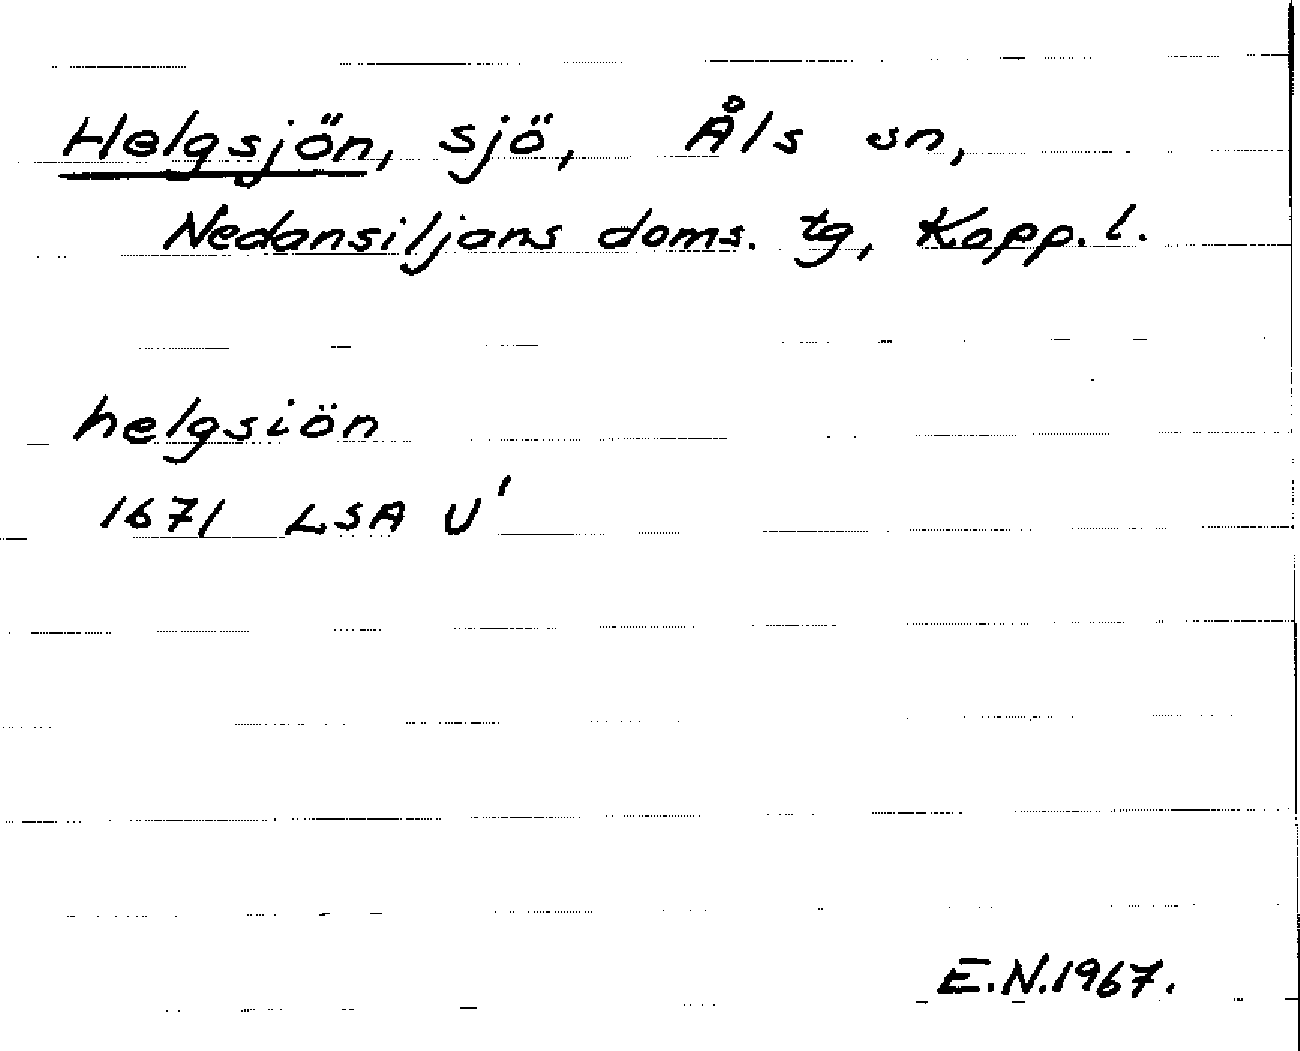 Helgsjön, sjö, Åls sn,
Nedansiljans doms. tg, Kopp. l.
helgsiön
1671 LSA U'
E.N.1967.